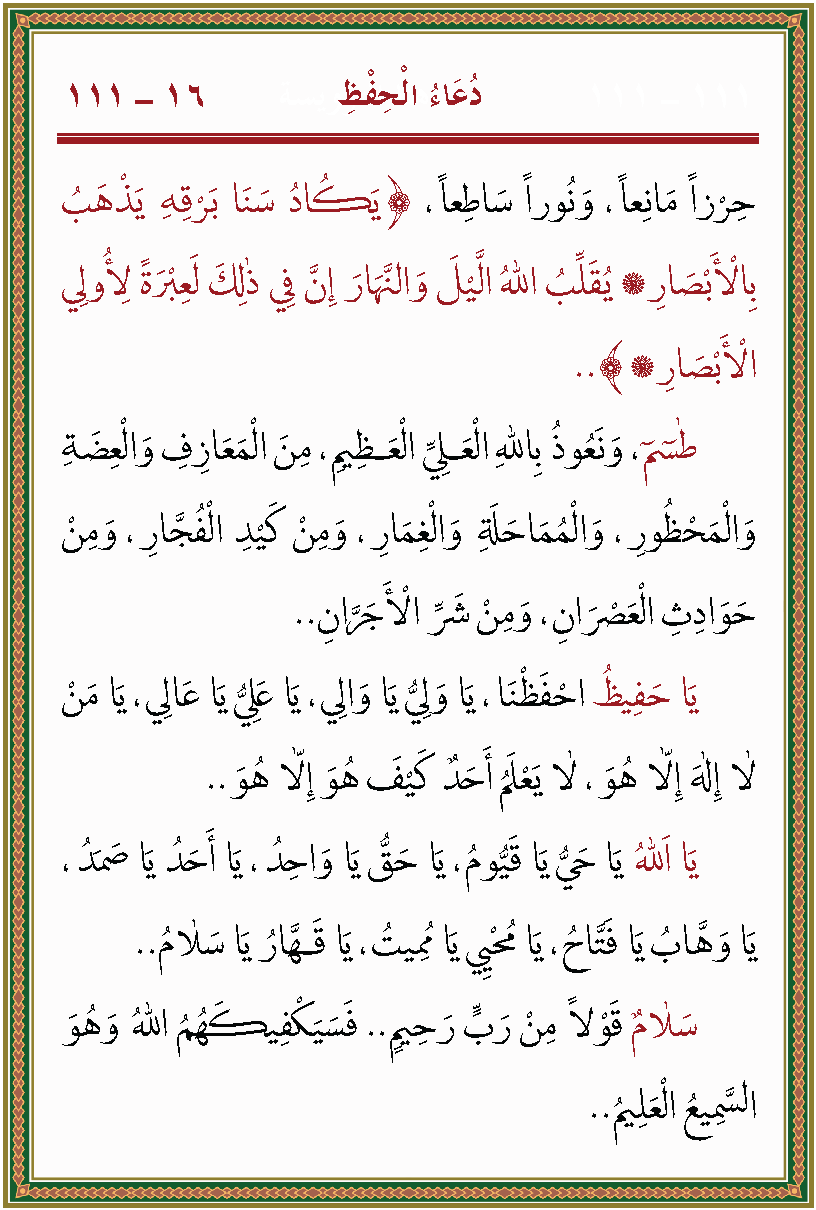 دُعَاءُ الْحِفْظِ ١٦ – ١١١
حِرْزاً مَانِعاً ، وَنُوراً سَاطِعاً ، ﴿يَكَادُ سَنَا بَرْقِهِ يَذْهَبُ
بِالْأَبْصَارِ * يُقَلِّبُ اللهُ الَّيْلَ وَالنَّهَارَ إِنَّ فِي ذٰلِكَ لَعِبْرَةً لِأُولِي
الْأَبْصَارِ * ﴾..
طٰسٓمٓ، وَنَعُوذُ بِاللهِ الْعَلِيِّ الْعَظِيمِ ، مِنَ الْمَعَازِفِ وَالْعِضَةِ
وَالْمَحْظُورِ ، وَالْمُمَاحَلَةِ وَالْغِمَارِ ، وَمِنْ كَيْدِ الْفُجَّارِ ، وَمِنْ
حَوَادِثِ الْعَصْرَانِ ، وَمِنْ شَرِّ الْأَجَرَّانِ..
يَا حَفِيظُ احْفَظْنَا ، يَا وَلِيُّ يَا وَالِي ، يَا عَلِيُّ يَا عَالِي ، يَا مَنْ
لٰا إِلٰهَ إِلّٰا هُوَ ، لٰا يَعْلَمُ أَحَدٌ كَيْفَ هُوَ إِلّٰا هُوَ ..
يَا اَللهُ يَا حَيُّ يَا قَيُّومُ ، يَا حَقُّ يَا وَاحِدُ ، يَا أَحَدُ يَا صَمَدُ ،
يَا وَهَّابُ يَا فَتَّاحُ ، يَا مُحْيِي يَا مُمِيتُ ، يَا قَهَّارُ يَا سَلٰامُ..
سَلٰامٌ قَوْلاً مِنْ رَبٍّ رَحِيمٍ.. فَسَيَكْفِيكَهُمُ اللهُ وَهُوَ
السَّمِيعُ الْعَلِيمُ..